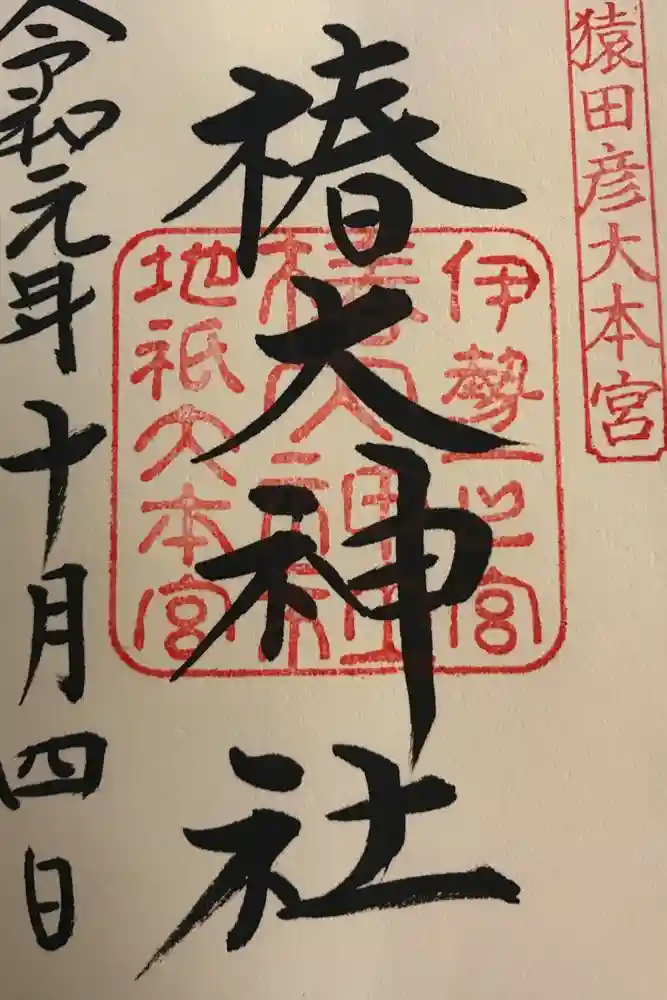 猿田彦大本宮
伊勢一之宮
椿大神社
地祇大本宮
椿大神社
令和元年十月四日